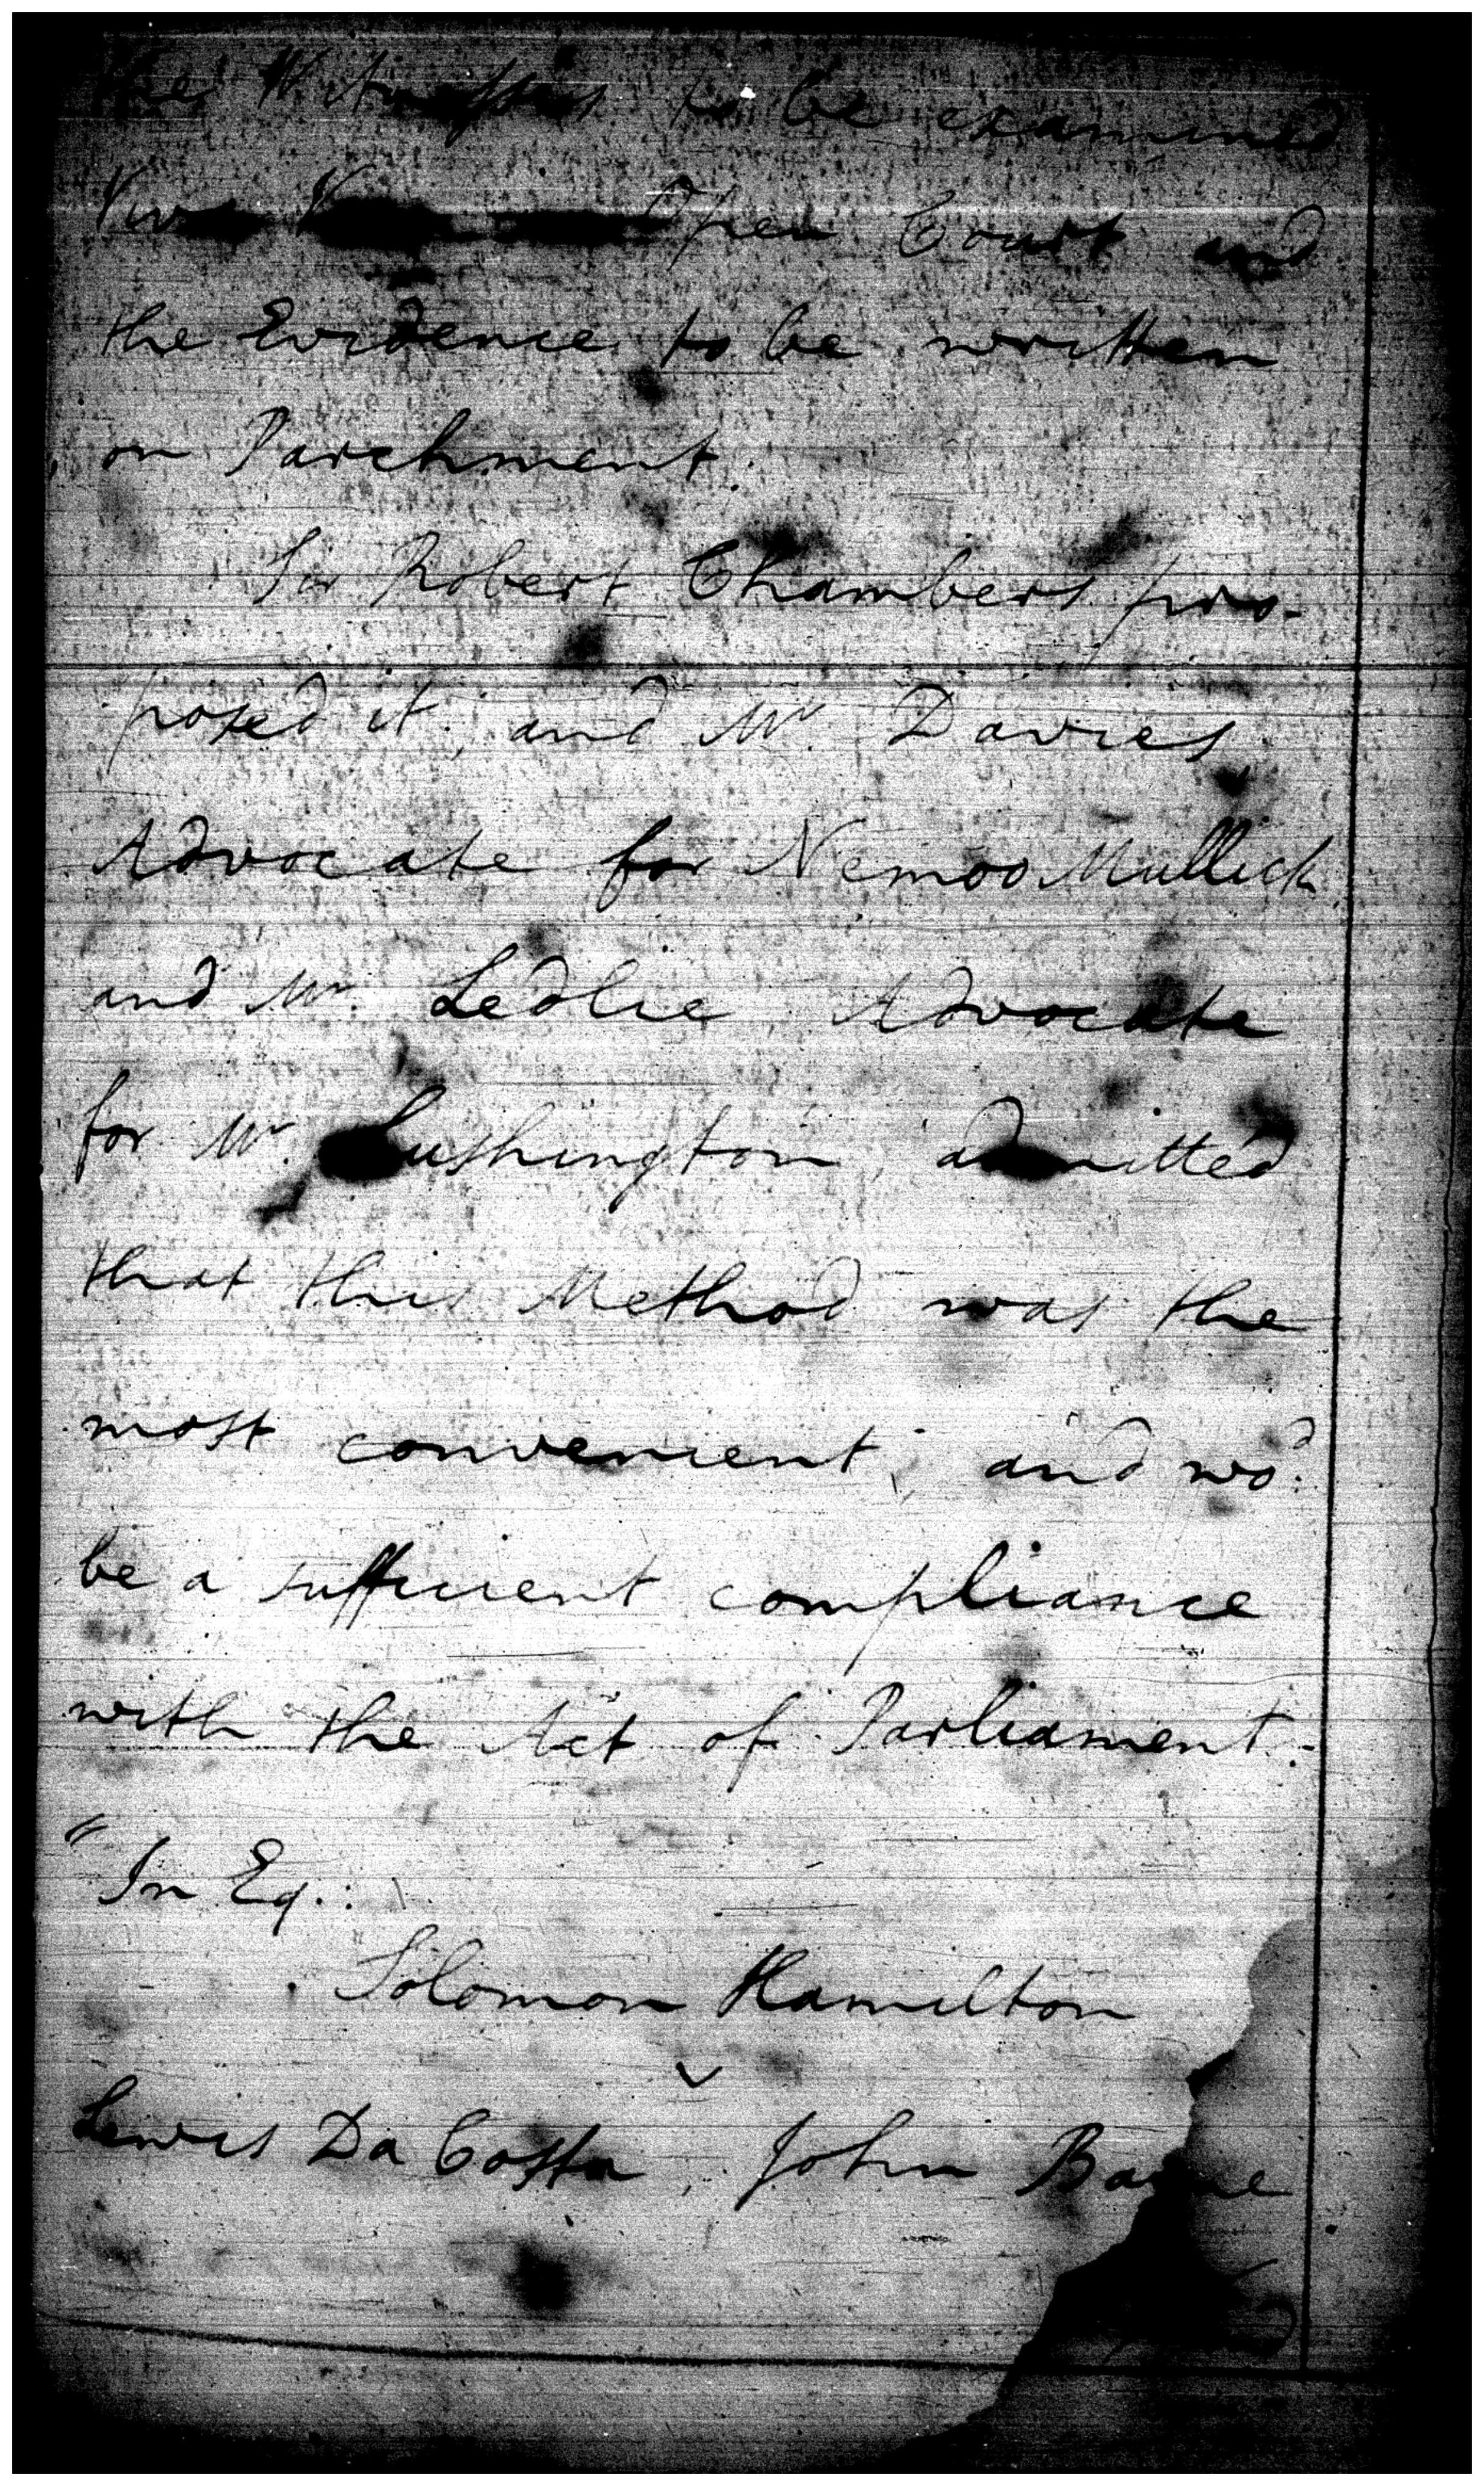 the Witnesses to be examined
Viva Open Court and
the Evidence to be written
on Parchment.
Sir Robert Chambers pro-
posed it, and Mr. Davies
Advocate for Nemoo Mullick
and Mr. Ledlie Advocate
for Mr. Lushington, admitted
that this Method was the
most convenient, and wod.
be a sufficient compliance
with the Act of Parliament.
"In Eq.:
Solomon Hamilton
v
Lewis Da Costa, John